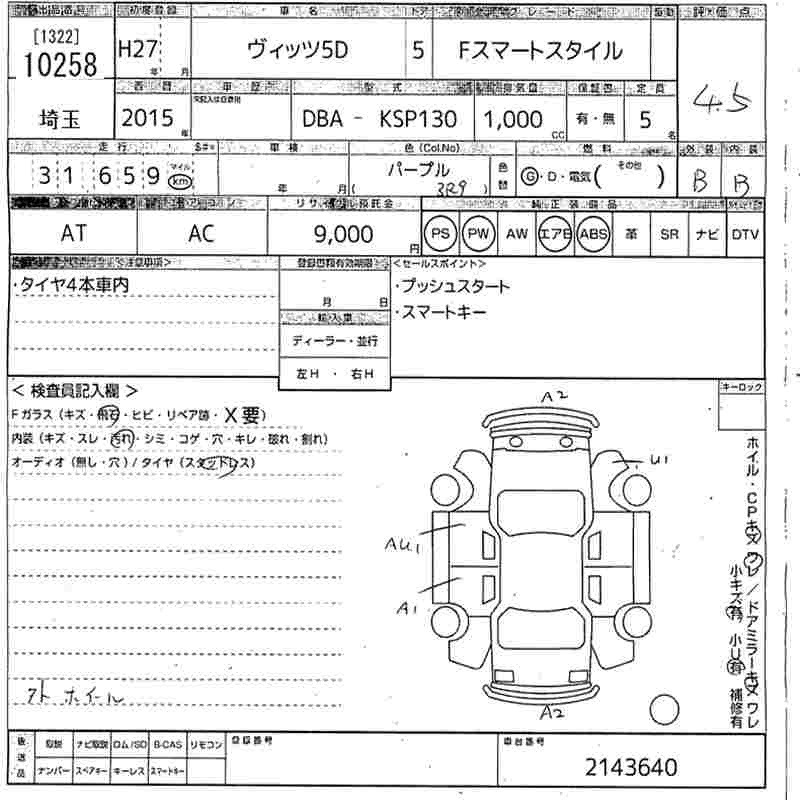 初度登録 車名 ドア グレード 評価点
[1322]
10258
H27 年 月
ヴィッツ5D 5 Fスマートスタイル
4.5
車歴 型式 排気量 保証書 定員
埼玉 2015 年
DBA - KSP130 1,000 CC 有・無 5 名
走行 車検 色(Col.No) 燃料 外装 内装
31,659 マイル km
年 月( パープル 3R9 ) 色替 G・D・電気( その他 ) B B
リサイクル預託金 純正装備品
AT AC 9,000 円 PS PW AW エアB ABS 革 SR ナビ DTV
登録書類有効期限 <セールスポイント>
・タイヤ4本車内
月 日
・プッシュスタート
・スマートキー
輸入車
ディーラー・並行
左H ・ 右H
< 検査員記入欄 >
キーロック
Fガラス(キズ・飛石・ヒビ・リペア跡・X要)
内装(キズ・スレ・汚れ・シミ・コゲ・穴・キレ・破れ・割れ)
オーディオ(無し・穴)/タイヤ(スタッドレス)
A2
U1
AU1
A1
A2
ホイル・CPキズ ワレ/ドアミラーキズ ワレ
小キズ有 小U有 補修有
ホイール
後送品 取説 ナビ取説 ロム/SD B-CAS リモコン
ナンバー スペアキー キーレス スマートキー
登録番号
車台番号
2143640